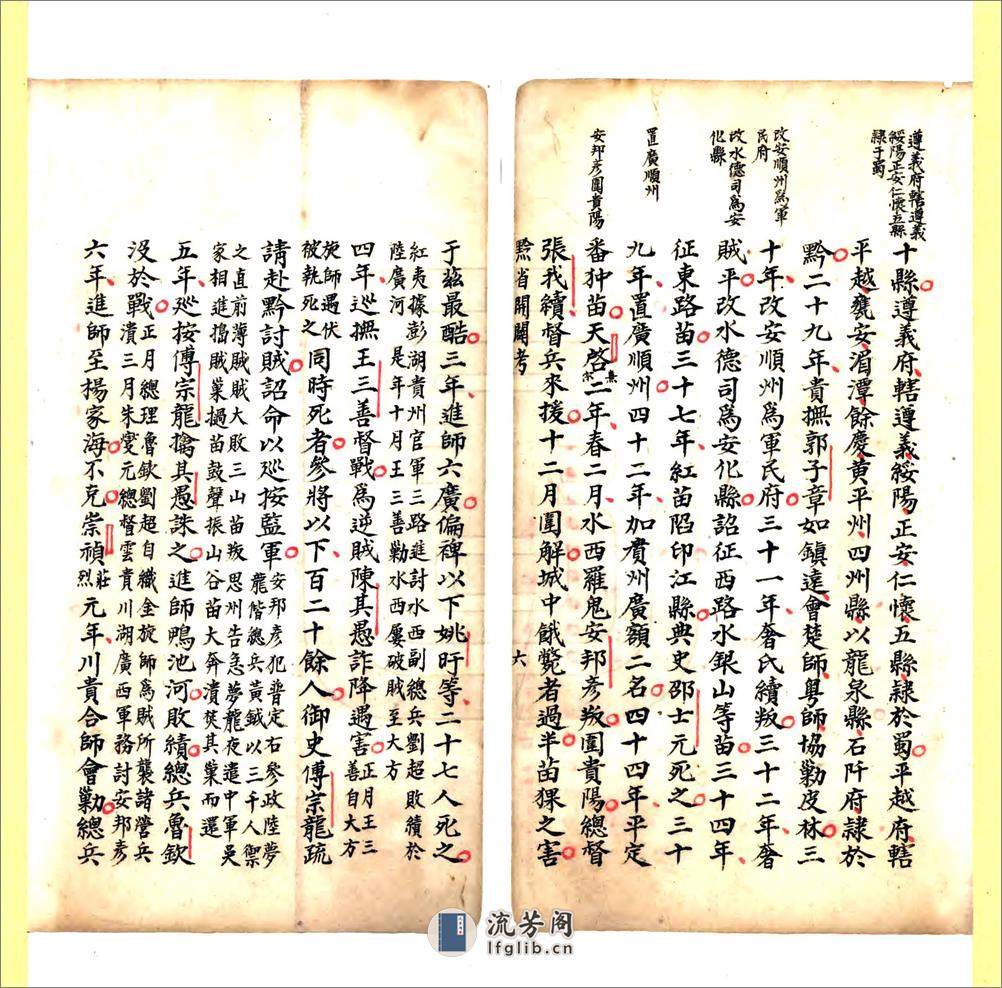 遵義府轄遵義
綏陽正安仁懷五縣
隸于蜀
改安順州爲軍
民府
改水德司爲安
化縣
置廣順州
安邦彥圍貴陽
十縣遵義府轄遵義綏陽正安仁懷五縣隸於蜀平越府轄
平越甕安湄潭餘慶黃平州四州縣以龍泉縣石阡府隸於
黔二十九年貴撫郭子章如鎮遠會楚師粵師協勦皮林三
十年改安順州爲軍民府三十一年奢氏續叛三十二年奢
賊平改水德司爲安化縣詔征西路水銀山等苗三十四年
征東路苗三十七年紅苗陷印江縣典史邵士元死之三十
九年置廣順州四十二年加貴州廣額二名四十四年平定
番狆苗天啓熹宗二年春二月水西羅鬼安邦彥叛圍貴陽總督
張我續督兵來援十二月圍解城中餓斃者過半苗猓之害
黔省開闢考
六
于茲最酷三年進師六廣偏裨以下姚旴等二十七人死之
紅夷據彭湖貴州官軍三路進討水西副總兵劉超敗績於
陸廣河 是年十月王三善勦水西屢破賊至大方
四年巡撫王三善督戰爲逆賊陳其愚詐降遇害
正月王三
善自大方
旋師遇伏
被執死之
同時死者參將以下百二十餘人御史傅宗龍疏
請赴黔討賊詔命以巡按監軍
安邦彥犯普定右參政陸夢
龍偕總兵黃鉞以三千人禦
之直前薄賊賊大敗三山苗叛思州告急夢龍夜遣中軍吳
家相進搗賊巢撾苗鼓聲振山谷苗大奔潰焚其巢而還
五年巡按傅宗龍擒其愚誅之進師鴨池河敗績總兵魯欽
沒於戰
正月總理魯欽劉超自織金旋師爲賊所襲諸營兵
潰三月朱燮元總督雲貴川湖廣西軍務討安邦彥
六年進師至楊家海不克崇禎莊烈元年川貴合師會勦總兵
流芳阁
lfglib.cn